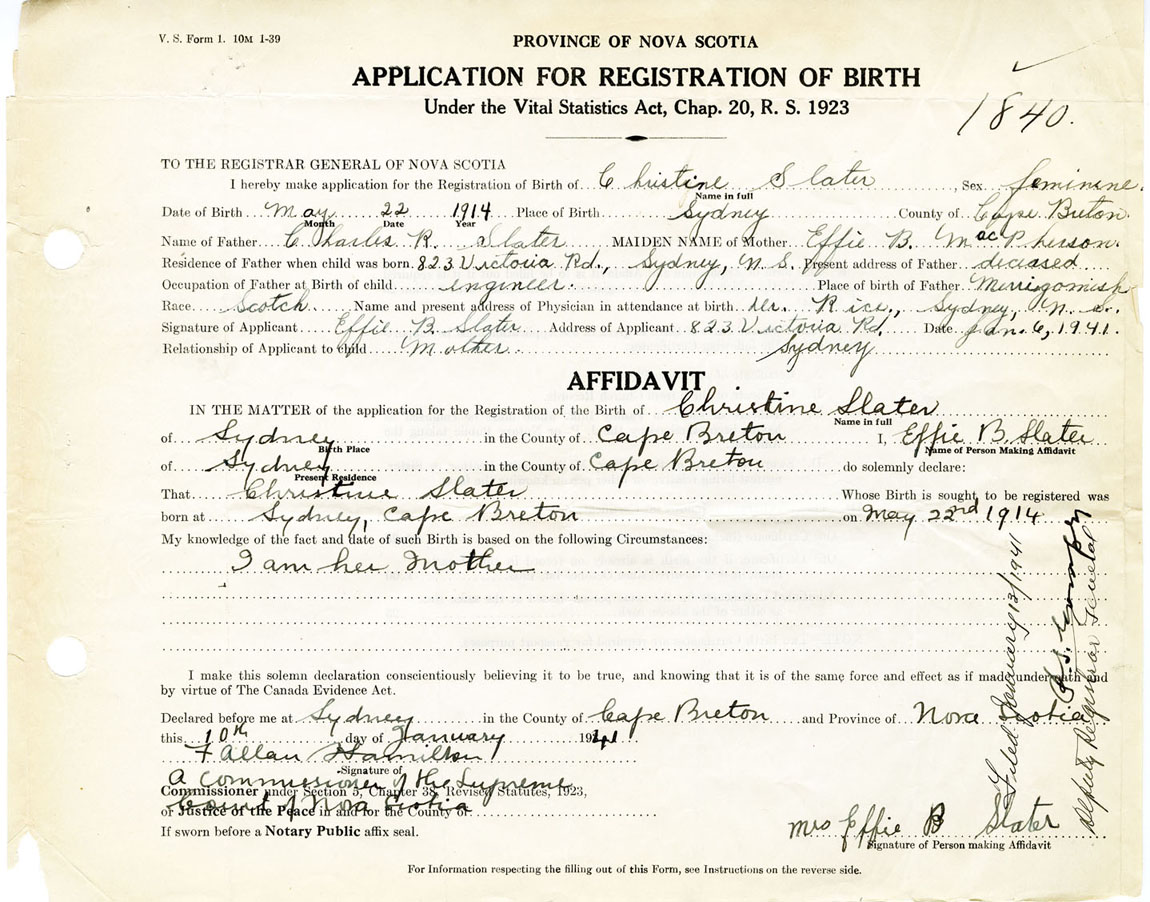 V. S. Form 1. 10M 1-39
PROVINCE OF NOVA SCOTIA
APPLICATION FOR REGISTRATION OF BIRTH
Under the Vital Statistics Act, Chap. 20, R. S. 1923
1840.
TO THE REGISTRAR GENERAL OF NOVA SCOTIA
I hereby make application for the Registration of Birth of Christine Slater, Sex feminine.
Name in full
Date of Birth May 22 1914 Place of Birth Sydney County of Cape Breton.
Month Date Year
Name of Father Charles R. Slater MAIDEN NAME of Mother Effie B. MacPherson.
Residence of Father when child was born. 823 Victoria Rd., Sydney, N. S. Present address of Father diceased
Occupation of Father at Birth of child engineer. Place of birth of Father. Merrigomish
Race Scotch Name and present address of Physician in attendance at birth. Dr. Rice, Sydney, N. S.
Signature of Applicant Effie B. Slater Address of Applicant 823 Victoria Rd Date Jan. 6, 1941.
Relationship of Applicant to child Mother. Sydney
AFFIDAVIT
IN THE MATTER of the application for the Registration of the Birth of Christine Slater
Name in full
of Sydney in the County of Cape Breton I, Effie B. Slater
Birth Place Name of Person Making Affidavit
of Sydney in the County of Cape Breton do solemnly declare:
Present Residence
That Christine Slater Whose Birth is sought to be registered was
born at Sydney, Cape Breton on May 22nd 1914
My knowledge of the fact and date of such Birth is based on the following Circumstances:
I am her Mother
I make this solemn declaration conscientiously believing it to be true, and knowing that it is of the same force and effect as if made under oath and
by virtue of The Canada Evidence Act.
Declared before me at Sydney in the County of Cape Breton and Province of Nova Scotia
this 10th day of January 1941
F Allan Hamilton
Signature of
A Commissioner of the Supreme
Commissioner under Section 5, Chapter 38, Revised Statutes, 1923,
Court of Nova Scotia
or Justice of the Peace in and for the County of
If sworn before a Notary Public affix seal.
Mrs Effie B Slater
Signature of Person making Affidavit
For Information respecting the filling out of this Form, see Instructions on the reverse side.
Filed January 13/1941
Deputy Registrar General